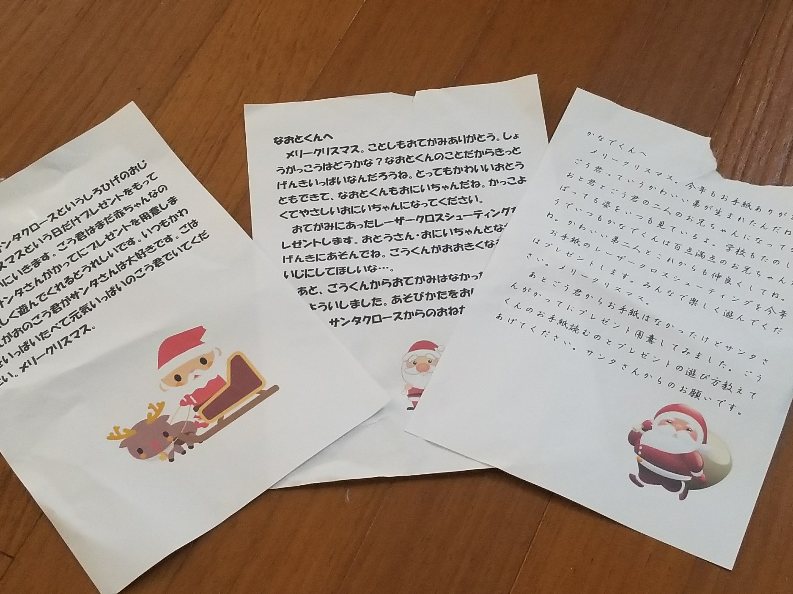 サンタクロースというしろひげのおじ
スマスという日だけプレゼントをもって
にいきます。こう君はまだ赤ちゃんなの
サンタさんがかってにプレゼントを用意しま
しく遊んでくれるとうれしいです。いつもかわ
がおのこう君がサンタさんは大好きです。ごは
いっぱいたべて元気いっぱいのこう君でいてくだ
い。メリークリスマス。
なおとくんへ
メリークリスマス。ことしもおてがみありがとう。しょ
うがっこうはどうかな?なおとくんのことだからきっと
げんきいっぱいなんだろうね。とってもかわいいおとう
ともできて、なおとくんもおにいちゃんだね。かっこよ
くてやさしいおにいちゃんになってください。
おてがみにあったレーザークロスシューティングを
レゼントします。おとうさん・おにいちゃんとな
げんきにあそんでね。ごうくんがおおきくなる
いじにしてほしいな…。
あと、ごうくんからおてがみはなかっ
よういしました。あそびかたをお
サンタクロースからのおね
かなでくんへ
メリークリスマス。今年もお手紙ありが
ごう君っていうかわいい弟が生まれたんだね
おと君とごう君の二人のお兄ちゃんになって
ばってる姿といつも見ているよ。学校もたのし
うで、いつもかなでくんは百点満点のお兄ちゃん
ね。かわいい弟二人とこれからも仲良くしてね。
お手紙のレーザークロスシューティングを今年
はプレゼントします。みんなで楽しく遊んでくだ
さい。メリークリスマス。
あとごう君からお手紙はなかったけどサンタさ
んがかってにプレゼント用意してみました。ごう
くんのお手紙読むのとプレゼントの遊び方教えて
あげてください。サンタさんからのお願いです。